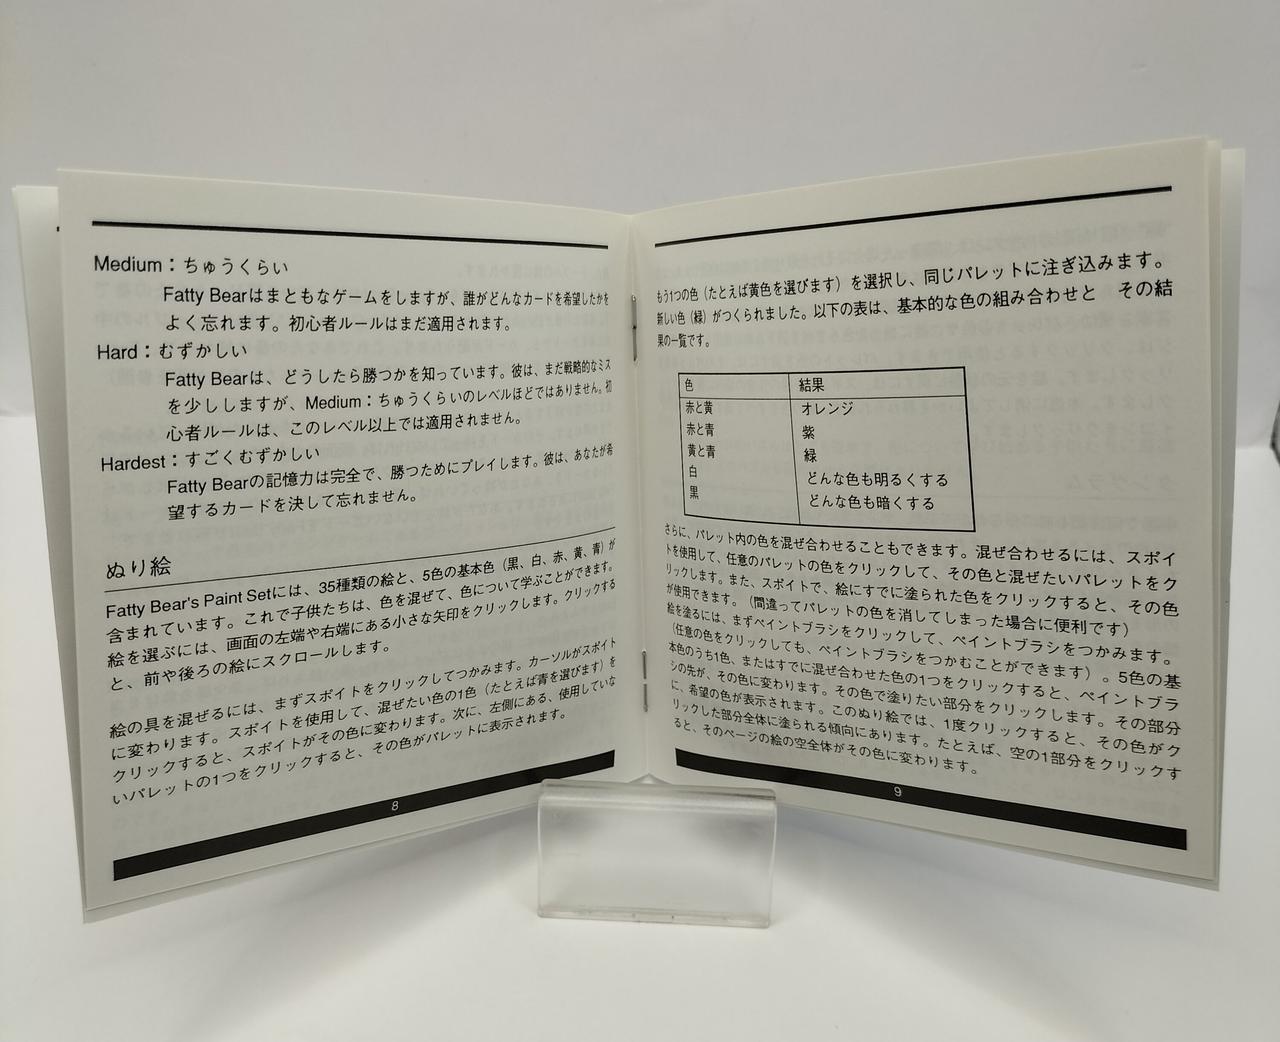 Medium：ちゅうくらい
Fatty Bearはまともなゲームをしますが、誰がどんなカードを希望したかを
よく忘れます。初心者ルールはまだ適用されます。
Hard：むずかしい
Fatty Bearは、どうしたら勝つかを知っています。彼は、まだ戦略的なミス
を少ししますが、Medium：ちゅうくらいのレベルほどではありません。初
心者ルールは、このレベル以上では適用されません。
Hardest：すごくむずかしい
Fatty Bearの記憶力は完全で、勝つためにプレイします。彼は、あなたが希
望するカードを決して忘れません。
ぬり絵
Fatty Bear's Paint Setには、35種類の絵と、5色の基本色（黒、白、赤、黄、青）が
含まれています。これで子供たちは、色を混ぜて、色について学ぶことができます。
絵を選ぶには、画面の左端や右端にある小さな矢印をクリックします。クリックする
と、前や後ろの絵にスクロールします。
絵の具を混ぜるには、まずスポイトをクリックしてつかみます。カーソルがスポイト
に変わります。スポイトを使用して、混ぜたい色の1色（たとえば青を選びます）を
クリックすると、スポイトがその色に変わります。次に、左側にある、使用していな
いパレットの1つをクリックすると、その色がパレットに表示されます。
8
もう1つの色（たとえば黄色を選びます）を選択し、同じパレットに注ぎ込みます。
新しい色（緑）がつくられました。以下の表は、基本的な色の組み合わせと　その結
果の一覧です。
色 結果
赤と黄 オレンジ
赤と青 紫
黄と青 緑
白 どんな色も明るくする
黒 どんな色も暗くする
さらに、パレット内の色を混ぜ合わせることもできます。混ぜ合わせるには、スポイ
トを使用して、任意のパレットの色をクリックして、その色と混ぜたいパレットをク
リックします。また、スポイトで、絵にすでに塗られた色をクリックすると、その色
が使用できます。（間違ってパレットの色を消してしまった場合に便利です）
絵を塗るには、まずペイントブラシをクリックして、ペイントブラシをつかみます。
（任意の色をクリックしても、ペイントブラシをつかむことができます）。5色の基
本色のうち1色、またはすでに混ぜ合わせた色の1つをクリックすると、ペイントブラ
シの先が、その色に変わります。その色で塗りたい部分をクリックします。その部分
に、希望の色が表示されます。このぬり絵では、1度クリックすると、その色がク
リックした部分全体に塗られる傾向にあります。たとえば、空の1部分をクリックす
ると、そのページの絵の空全体がその色に変わります。
9